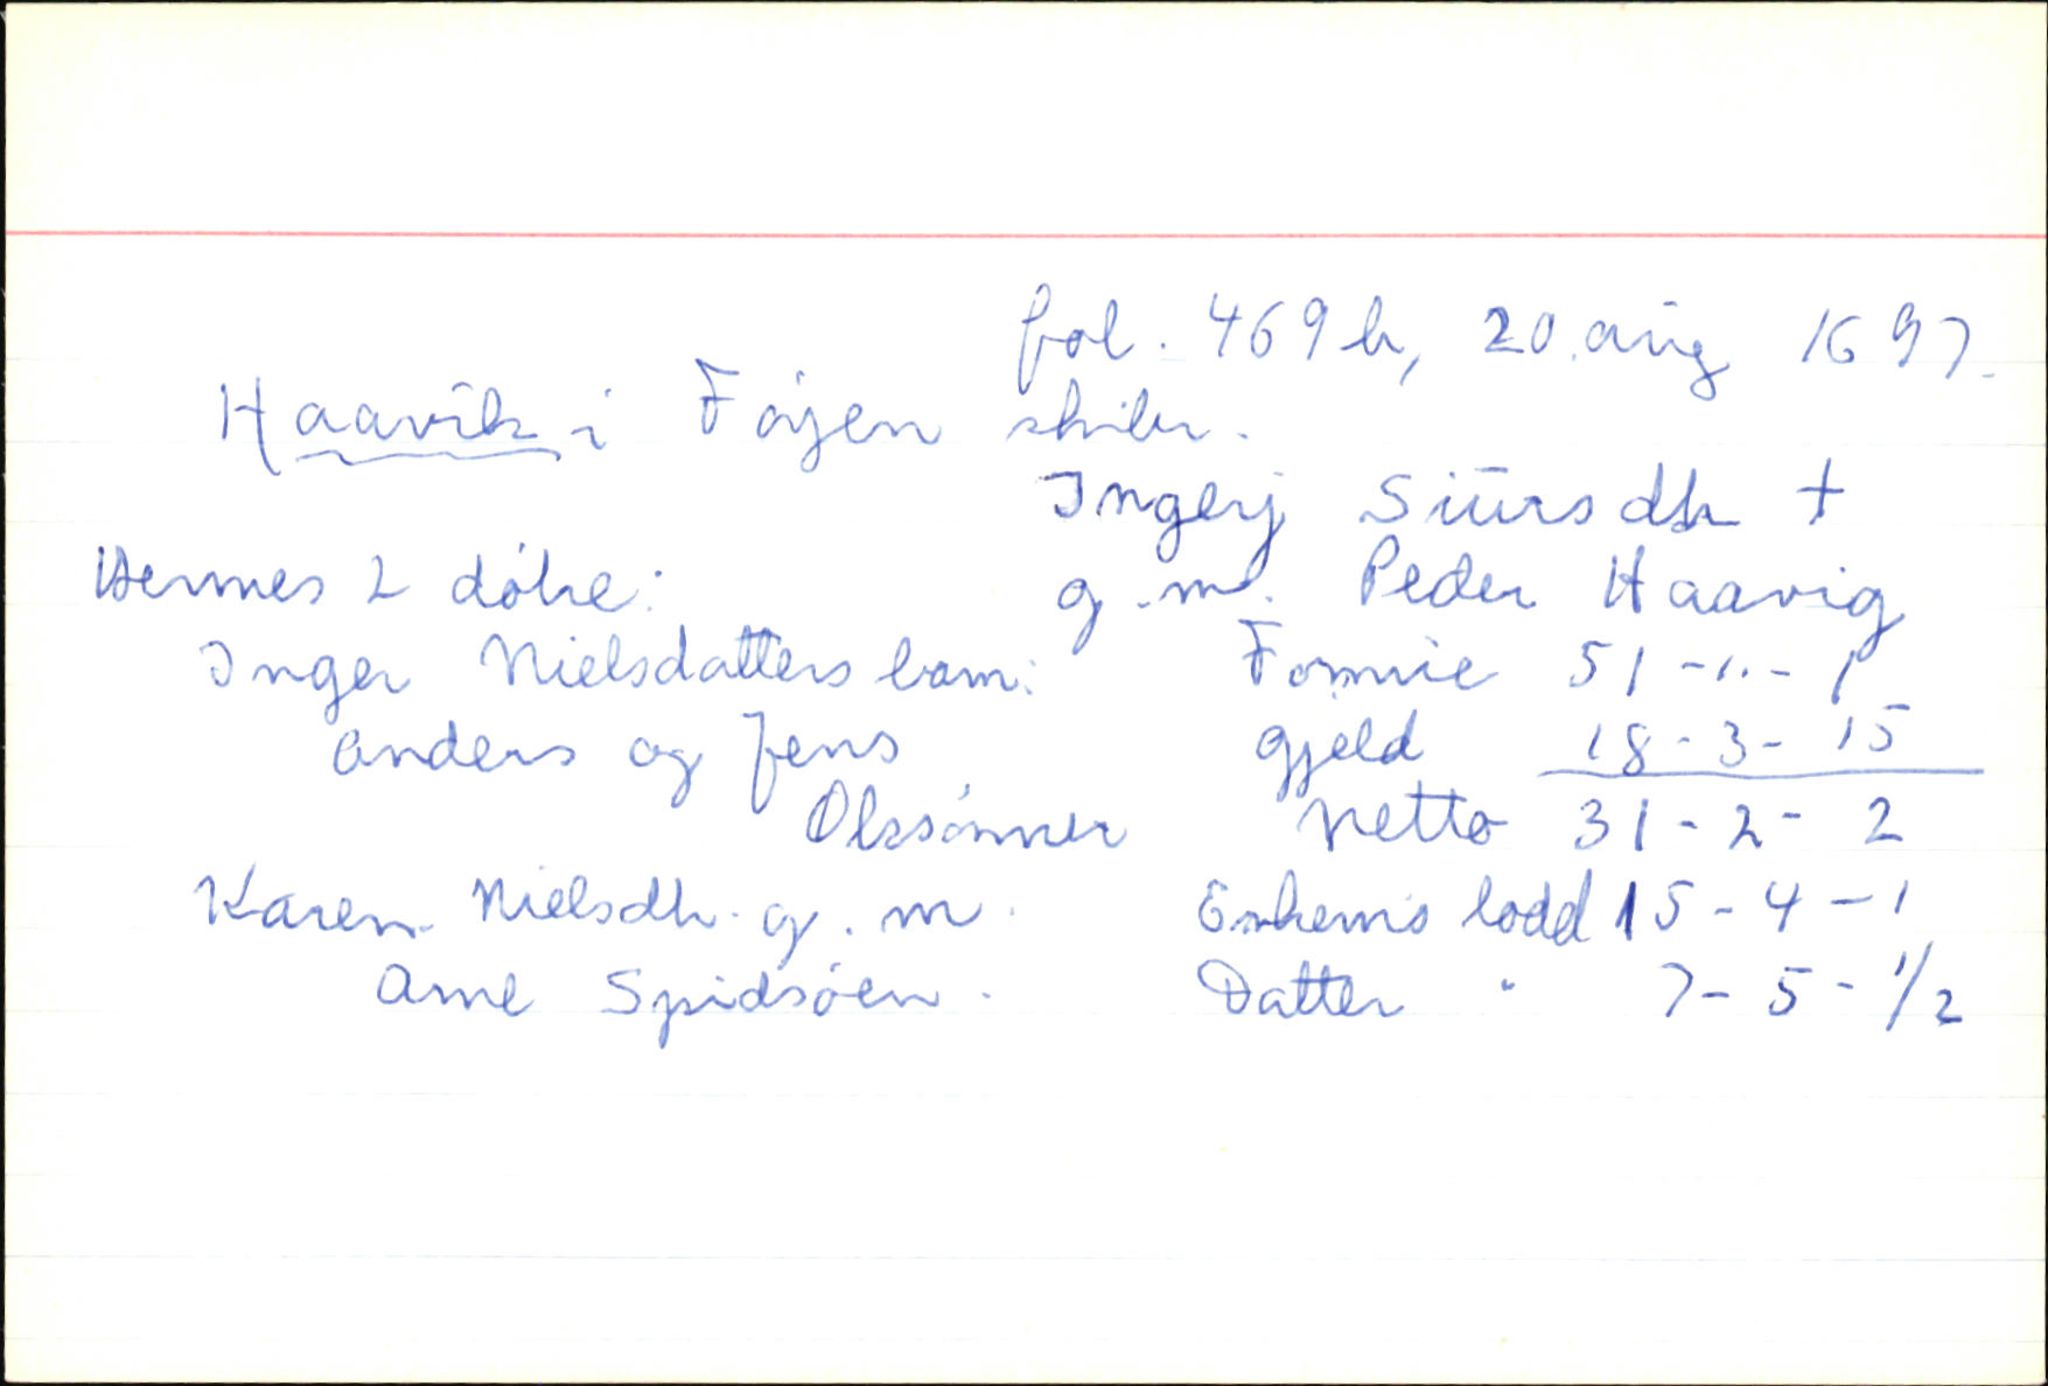 fol. 469 b, 20. aug 1697.
Haavik i Føyen skibr.
Ingerj Siursdtr †
Hennes 2 døtre: g.m. Peder Haavig
Inger Nielsdatters barn: Formue 51 - " - 1
Anders og Jens gjeld 18 - 3 - 15
Olssønner Netto 31 - 2 - 2
Karen Nielsdtr. g.m. Enkems lodd 15 - 4 - 1
Arne Spidsøen. Datter " 7 - 5 - 1/2